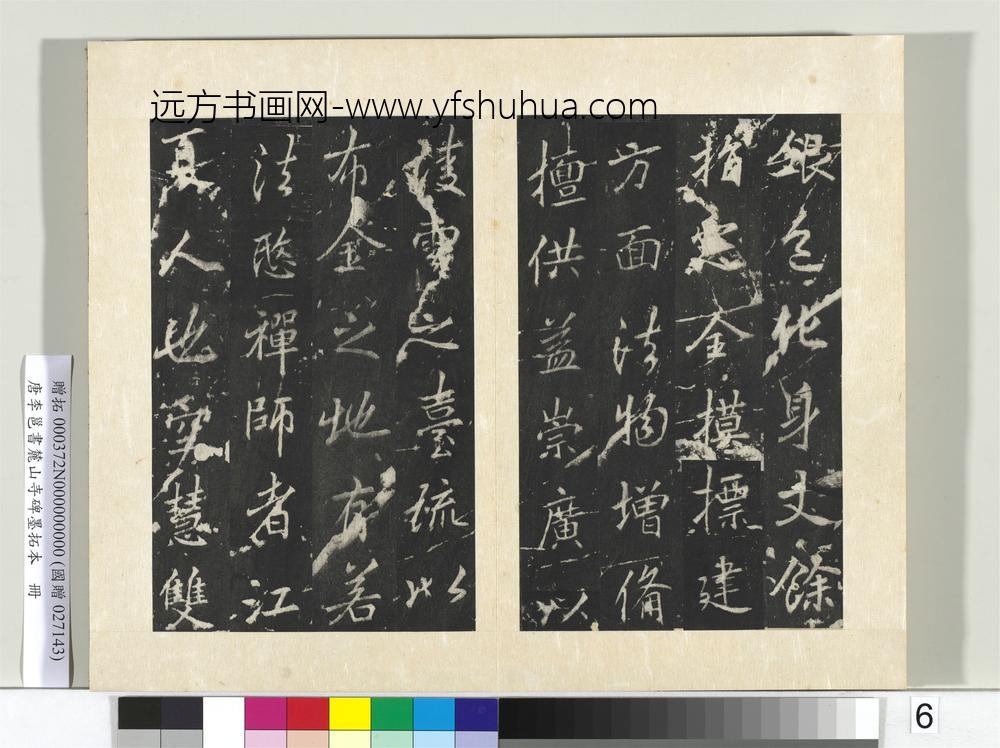 远方书画网-www.yfshuhua.com
銀色化身丈餘
指定金模標建
方面法物增備
擅供益崇廣以
凌雲之臺疏以
布金之地有若
法愍禪師者江
夏人也空慧雙
贈拓 000372N000000000 (國贈 027143)
唐李邕書麓山寺碑墨拓本 冊
6